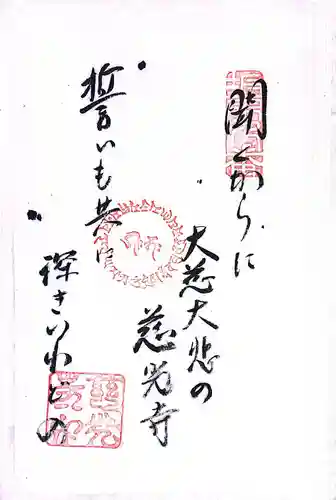 聞くからに
大慈大悲の
慈光寺
誓いも共に
深きいわどの